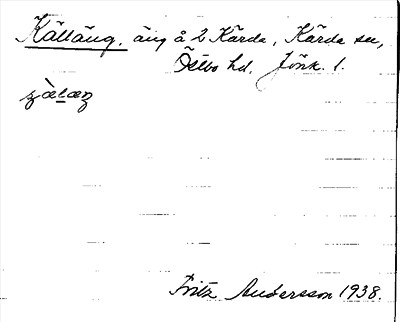 Källäng. äng å 2 Kärda, Kärda sn,
Östbo hd. Jönk. l.
Fritz Andersson 1938.